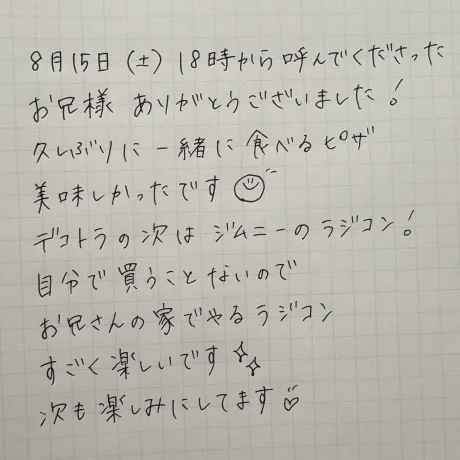 8月15日(土)18時から呼んでくださった
お兄様 ありがとうございました!
久しぶりに一緒に食べるピザ
美味しかったです
デコトラの次は ジムニーのラジコン!
自分で買うことないので
お兄さんの家でやるラジコン
すごく楽しいです
次も楽しみにしてます